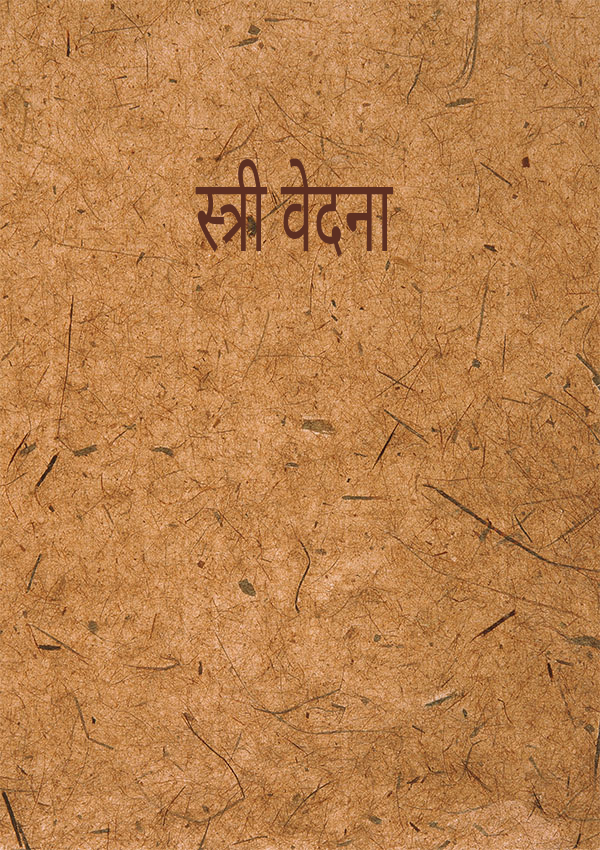 स्त्री वेदना